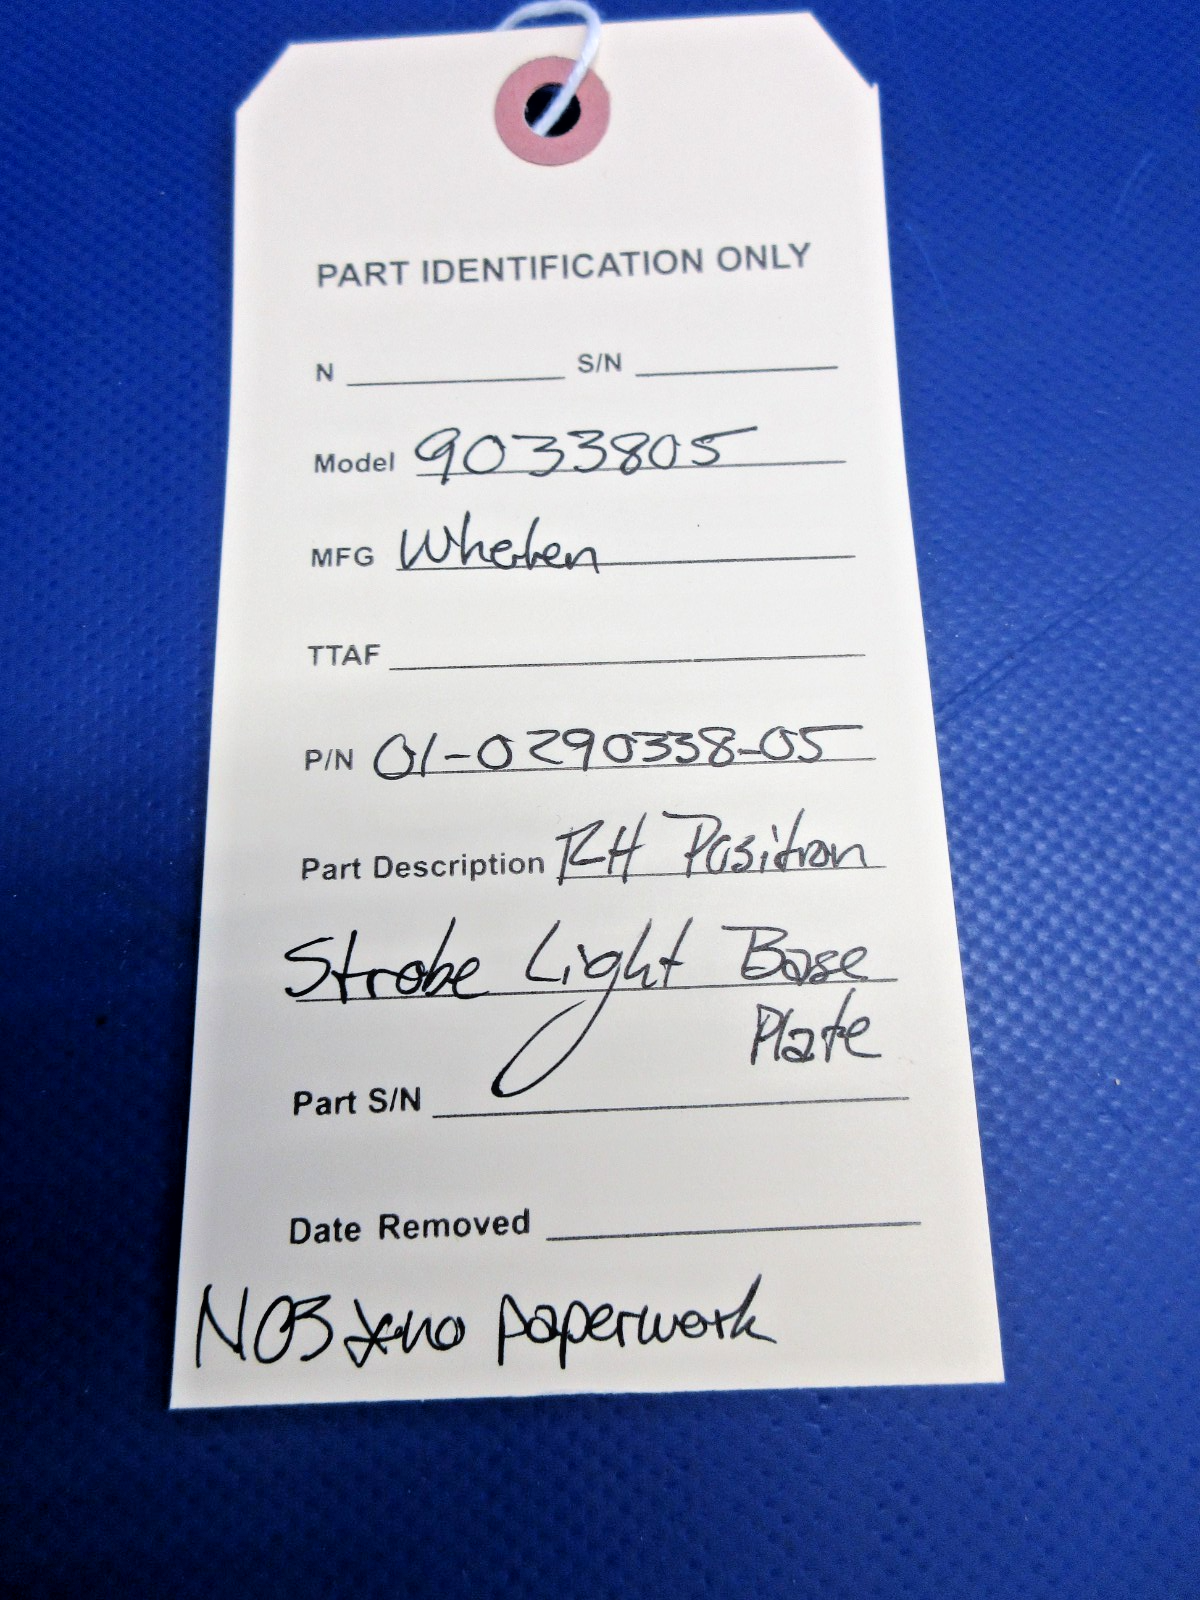 PART IDENTIFICATION ONLY
N S/N
Model 9033805
MFG Whelen
TTAF
P/N 01-0290338-05
Part Description RH Position
Strobe Light Base
Plate
Part S/N
Date Removed
NOS no paperwork